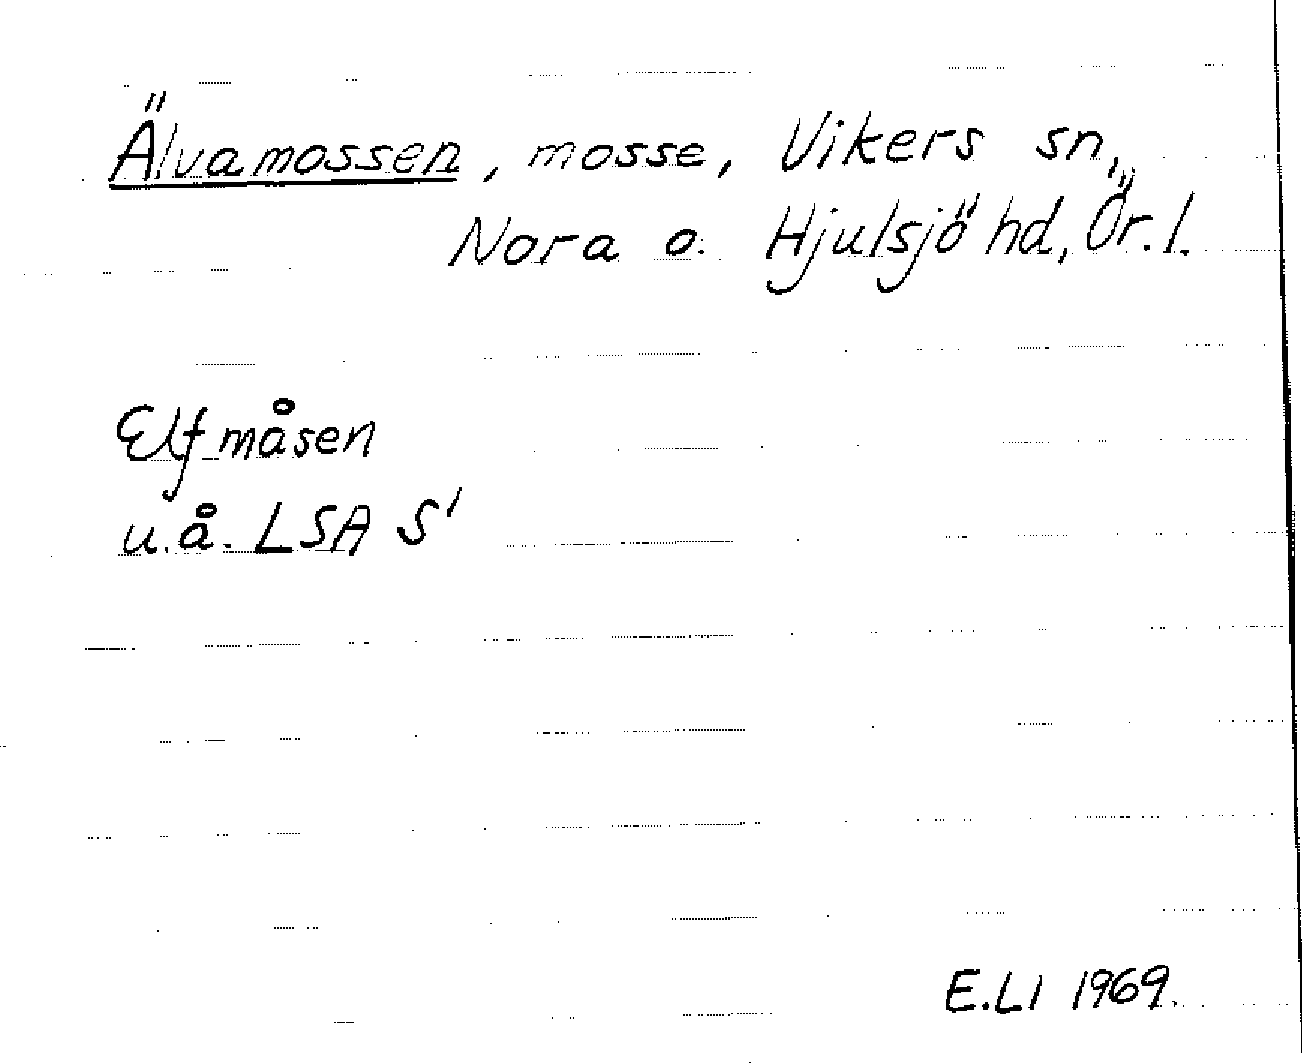 Älvamossen, mosse, Vikers sn,
Nora o. Hjulsjö hd, Ör. l.
Elfmåsen
u.å. LSA S¹
E.Ll 1969.